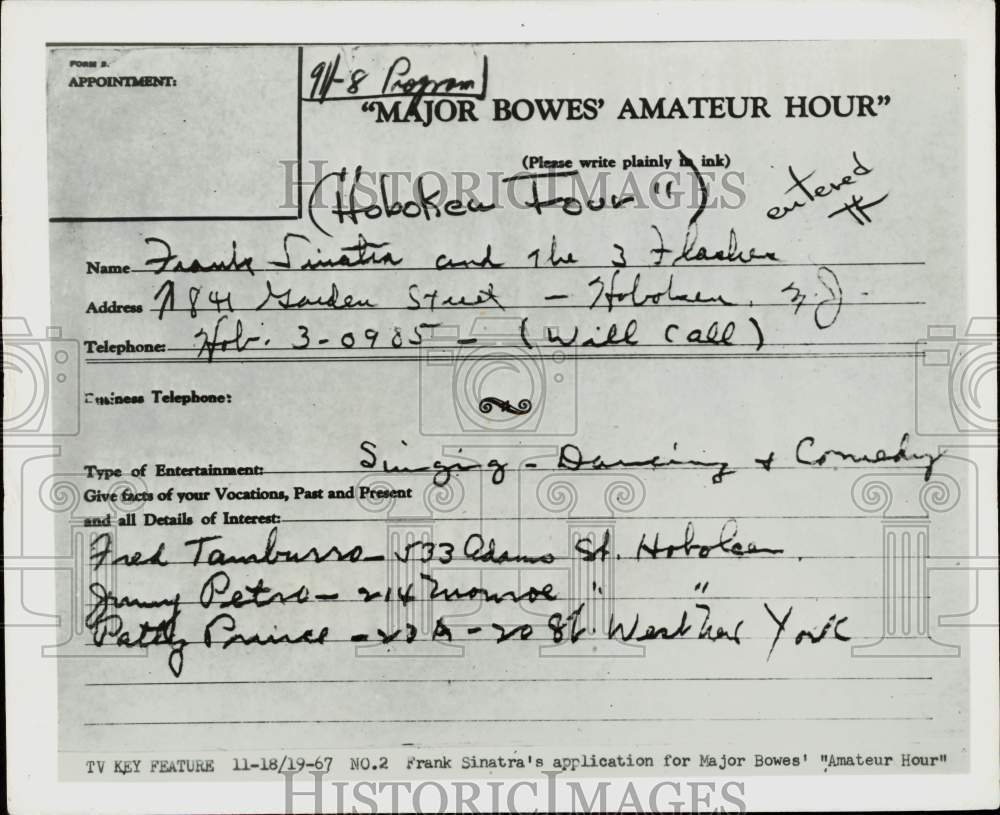 FORM 2.
APPOINTMENT:
9/-8 Program
"MAJOR BOWES' AMATEUR HOUR"
(Please write plainly in ink)
(Hoboken Four")
entered
Name Frank Sinatra and the 3 Flashes
Address 841 Garden Street - Hoboken, N.J.
Telephone: Hob. 3-0985 - (Will Call)
Business Telephone:
Type of Entertainment: Singing - Dancing + Comedy
Give facts of your Vocations, Past and Present
and all Details of Interest:
Fred Tamburro - 533 Adams St. Hoboken.
Jimmy Petro - 214 Monroe " "
Patty Prince - 20 St. West New York
TV KEY FEATURE 11-18/19-67 NO.2 Frank Sinatra's application for Major Bowes' "Amateur Hour"
HISTORICIMAGES
HISTORICIMAGES